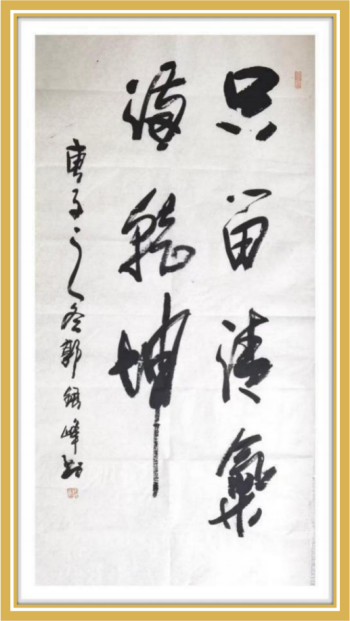 只留清氣
滿乾坤
庚子之冬郭峰